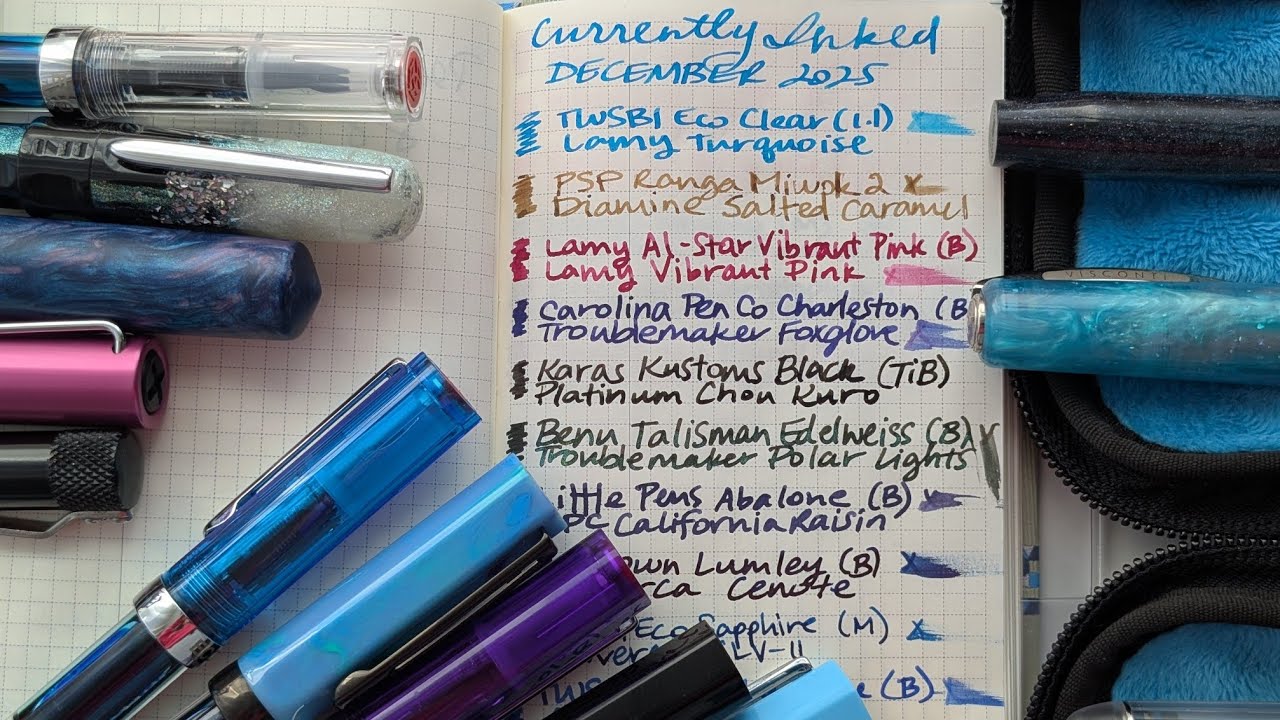 Currently Inked
DECEMBER 2025
TWSBI Eco Clear (1.1)
Lamy Turquoise
PSP Ranga Miwok 2
Diamine Salted Caramel
Lamy Al-Star Vibrant Pink (B)
Lamy Vibrant Pink
Carolina Pen Co Charleston (B
Troublemaker Foxglove
Karas Kustoms Black (TiB)
Platinum Chou Kuro
Benu Talisman Edelweiss (B)
Troublemaker Polar Lights
ittle Pens Abalone (B)
PC California Raisin
own Lumley (B)
rca Cenote
Eco Sapphire (M)
ver LV-11
TWS e (B)
VISCONTI
BENU